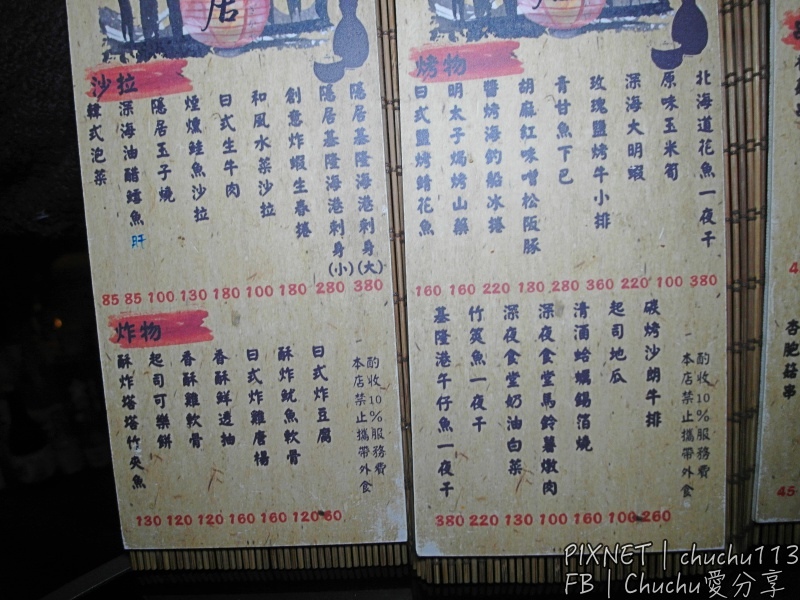 居
沙拉
隱居基隆海港刺身(大)
隱居基隆海港刺身(小)
創意炸蝦生春捲
和風水菜沙拉
日式生牛肉
煙燻鮭魚沙拉
隱居玉子燒
深海油醋鱈魚肝
韓式泡菜
85 85 100 130 180 100 180 280 380
炸物
日式炸豆腐
酥炸魷魚軟骨
日式炸雞唐揚
香酥鮮透抽
香酥雞軟骨
起司可樂餅
酥炸塔塔竹筴魚
酌收10%服務費
本店禁止攜帶外食
130 120 120 160 160 120 60
烤物
北海道花魚一夜干
原味玉米筍
深海大明蝦
玫瑰鹽烤牛小排
青甘魚下巴
胡麻紅味噌松阪豚
醬烤海釣船冰捲
明太子焗烤山藥
日式鹽烤鯖花魚
160 160 220 180 280 360 220 100 380
碳烤沙朗牛排
起司地瓜
清酒蛤蠣錫箔燒
深夜食堂馬鈴薯燉肉
深夜食堂奶油白菜
竹筴魚一夜干
基隆港午仔魚一夜干
酌收10%服務費
本店禁止攜帶外食
380 220 130 100 160 100 260
杏鮑菇串
45
PIXNET | chuchu113
FB | Chuchu愛分享